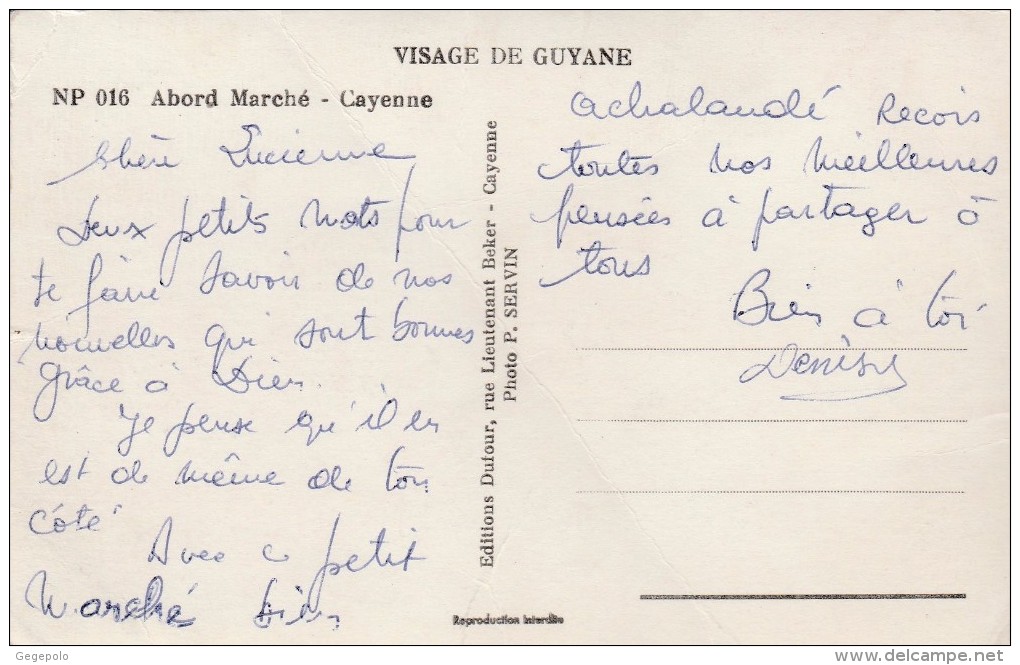 VISAGE DE GUYANE
NP 016 Abord Marché - Cayenne
chère Lucienne
Deux petits mots pour
te faire savoir de nos
nouvelles qui sont bonnes
grâce à Dieu.
Je pense qu'il en
est de même de ton
côté
Avec ce petit
Marché bien
Editions Dufour, rue Lieutenant Beker - Cayenne
Photo P. SERVIN
achalandé Recois
toutes nos meilleures
pensées à partager à
tous
Bien à toi
Denise
Reproduction interdite
Gegepolo
www.delcampe.net